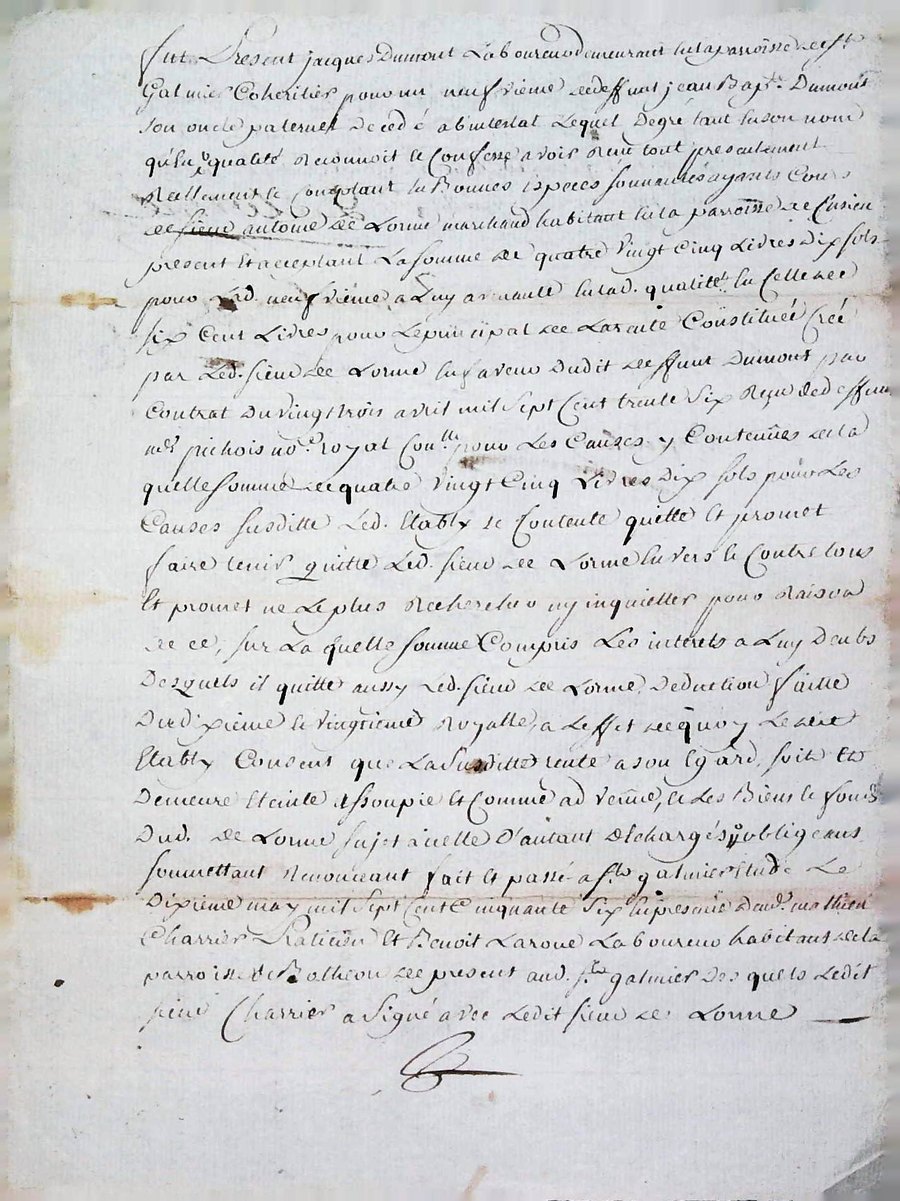 fut Present jacques Dumont Laboureur demeurant en la parroisse de st
Galmier Coheritier pour un neufvieme de deffunt jean Bapte. Dumont
son oncle paternel Decedé abintestat Lequel Degré tant en son nom
qu'en qualité Reconnoit et Confesse avoir Reçu tout presentement
Reellement et Comptant en Bonnes especes sonnantes ayants Cours
de sieur antoine De Lorme marchand habitant en la parroisse de Cusieu
present et acceptant La somme de quatre vingt Cinq Livres Dix sols
pour Led. neufvieme a Luy avenant en lad. qualité en Celle de
six Cent Livres pour Le principal de La rente Constituée Créé
par Led. sieur De Lorme en faveur Dudit deffunt Dumont par
Contrat Du vingt trois avril mil sept Cent trente six Reçu de deffunt
me pichois nore. Royal Conlle pour Les Causes y Contenües de la
quelle somme de quatre vingt Cinq Livres Dix sols pour Les
Causes susditte Led. Etably se Contente quitte et promet
faire tenir quitte Led. sieur De Lorme envers et Contre tous
Et promet ne Le plus Rechercher ny inquietter pour Raison
de ce, sur La quelle somme Compris Les interets a Luy Deubs
Desquels il quitte aussy Led. sieur De Lorme, Deduction faitte
Du Dixieme et vingtieme Royalle, a L'effet de quoy Ledit
Etably Consent que La susditte rente a son Egard, soit et
Demeure Eteinte Assoupie et Comme ad venüe, et Les Biens et fonds
Dud. De Lorme sujet à icelle D'autant Dechargés, obligeans
soumettant Renonceant fait et passé a st galmier Etude Le
Dixieme may mil sept Cent Cinquante six en presence de mathieu
Charrier Praticien Et Benoit Laroue Laboureur habitant de la
parroisse de Botheon de present aud. st galmier Des quels Ledit
sieur Charrier a signé avec Ledit sieur De Lorme